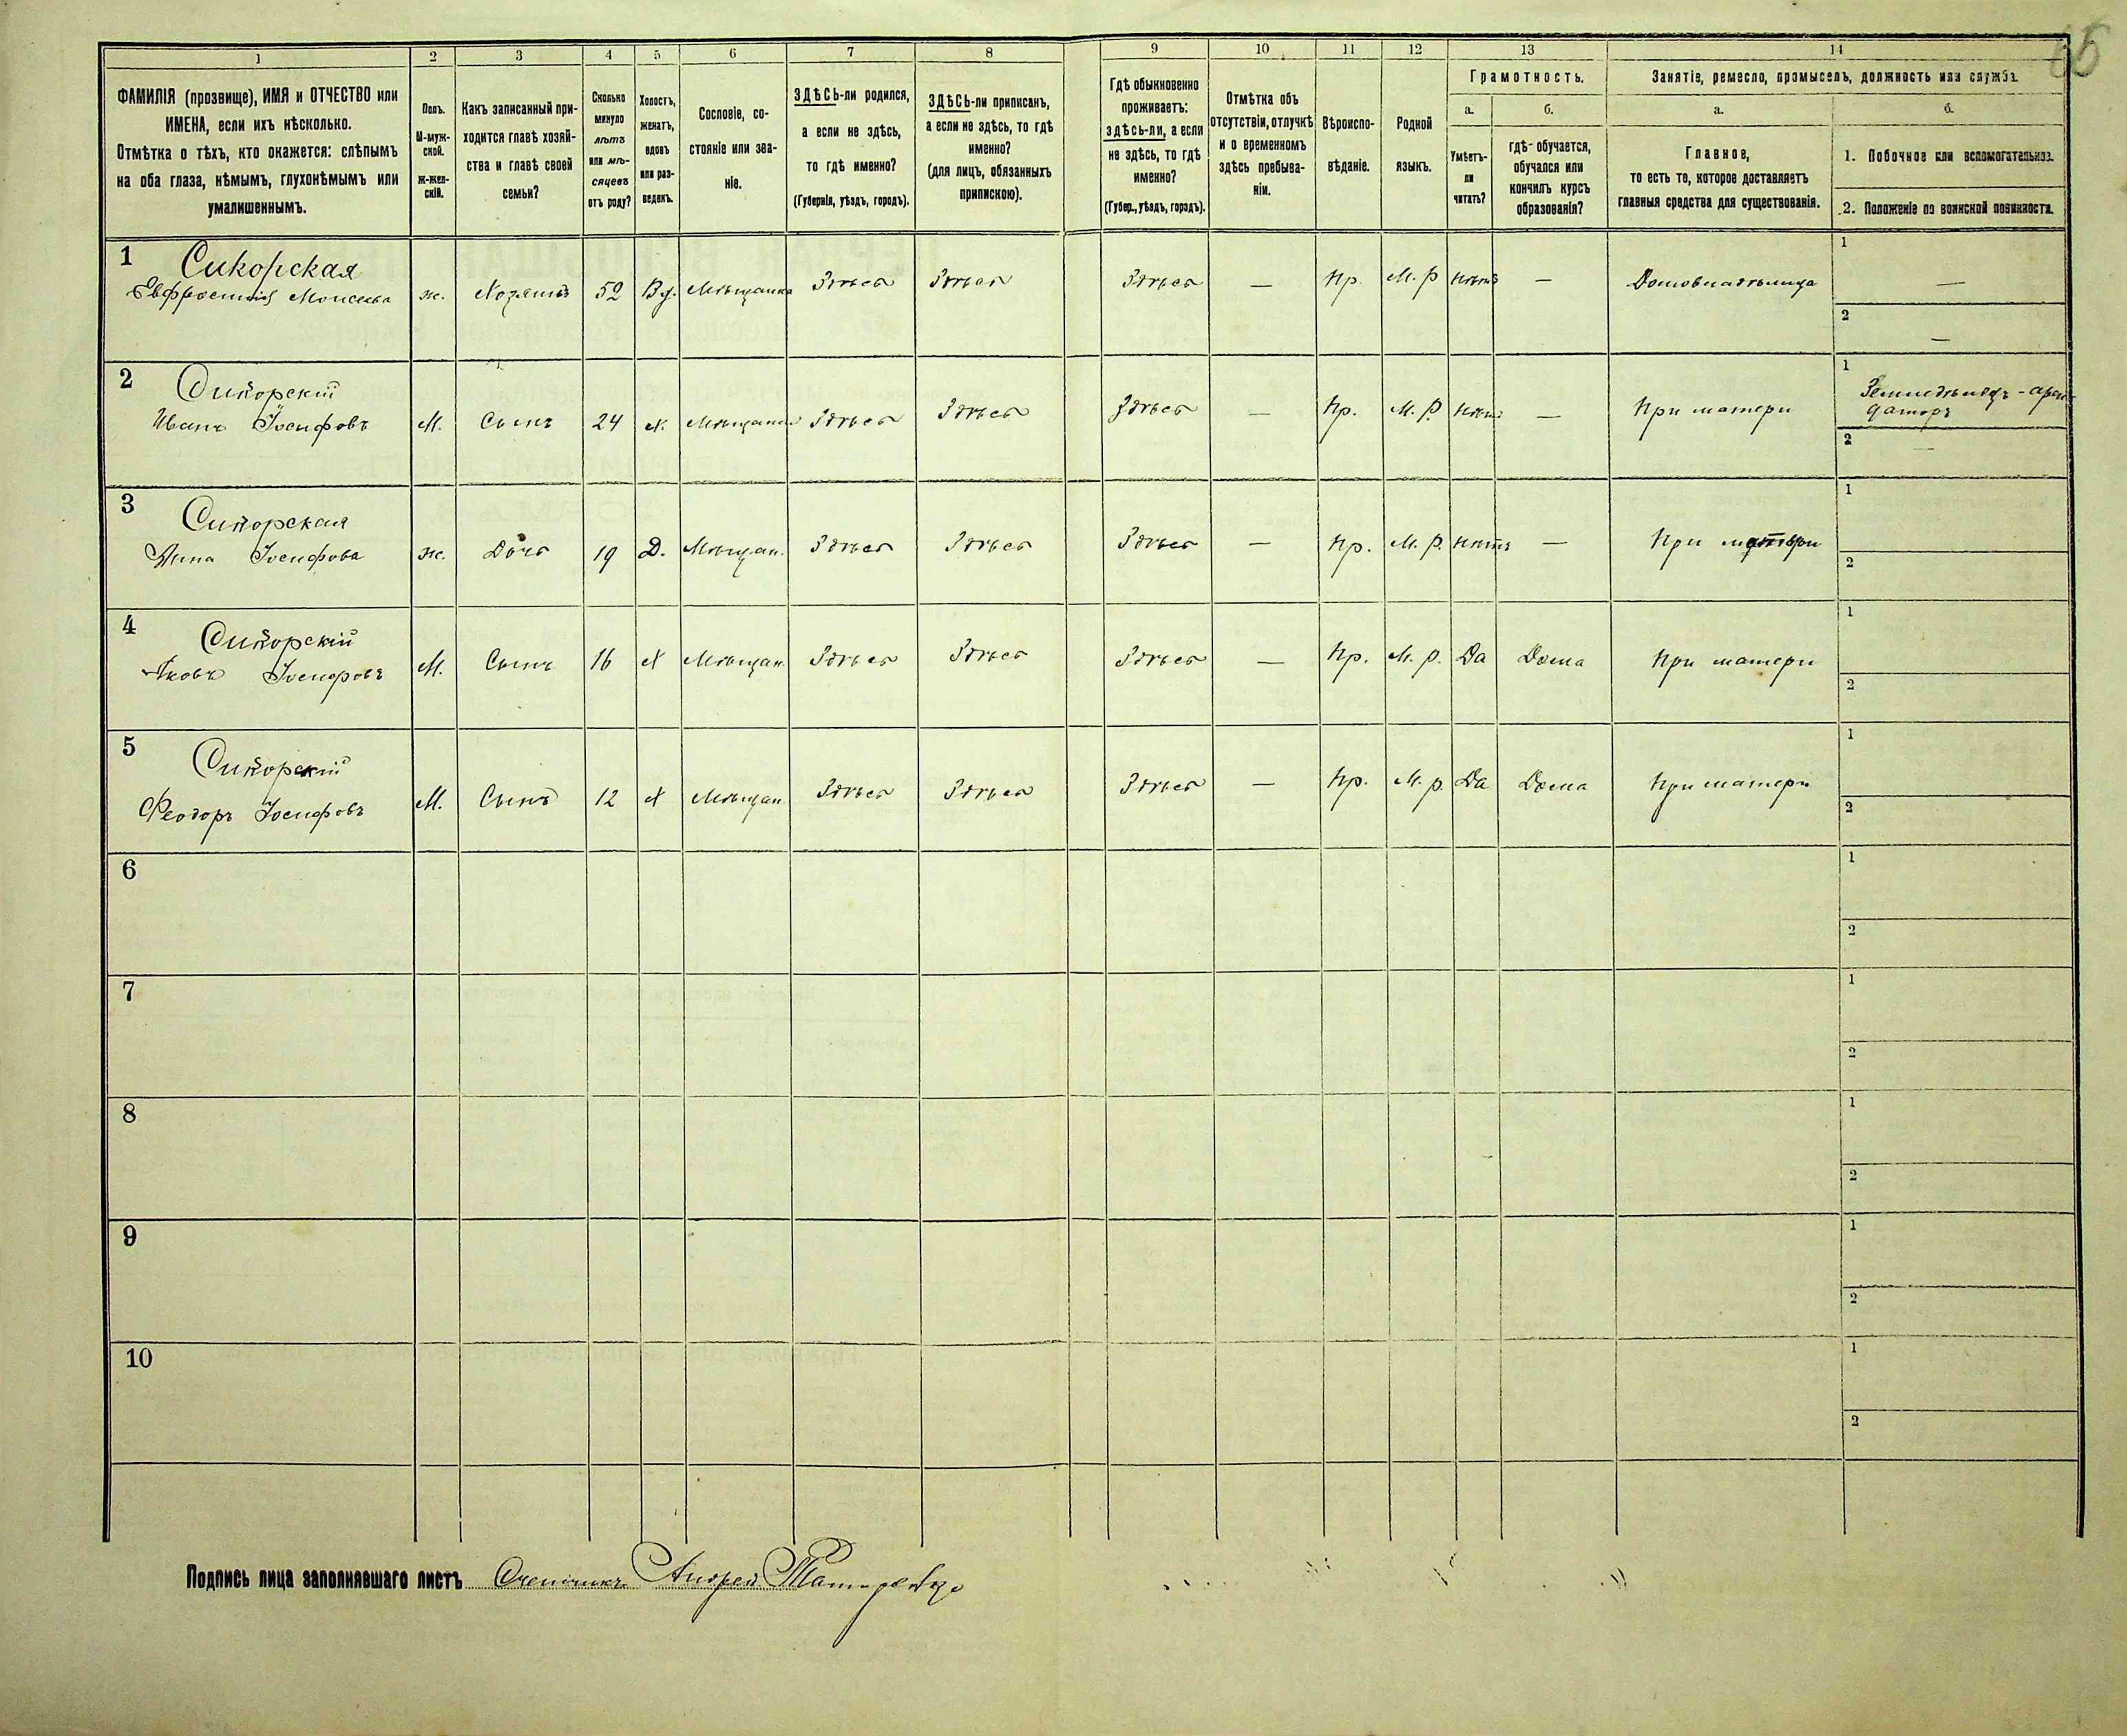 65
1 2 3 4 5 6 7 8 9 10 11 12 13 14
ФАМИЛІЯ (прозвище), ИМЯ и ОТЧЕСТВО или
ИМЕНА, если ихъ нѣсколько.
Отмѣтка о тѣхъ, кто окажется: слѣпымъ
на оба глаза, нѣмымъ, глухонѣмымъ или
умалишеннымъ.
Полъ.
М-муж-
ской.
ж-жен-
скій.
Какъ записанный при-
ходится главѣ хозяй-
ства и главѣ своей
семьи?
Сколько
минуло
лѣтъ
или мѣ-
сяцевъ
отъ роду?
Холостъ,
женатъ,
вдовъ
или раз-
веденъ.
Сословіе, со-
стояніе или зва-
ніе.
ЗДѢСЬ-ли родился,
а если не здѣсь,
то гдѣ именно?
(Губернія, уѣздъ, городъ).
ЗДѢСЬ-ли приписанъ,
а если не здѣсь, то гдѣ
именно?
(для лицъ, обязанныхъ
припискою).
Гдѣ обыкновенно
проживаетъ:
здѣсь-ли, а если
не здѣсь, то гдѣ
именно?
(Губер., уѣздъ, городъ).
Отмѣтка объ
отсутствіи, отлучкѣ
и о временномъ
здѣсь пребыва-
ніи.
Вѣроиспо-
вѣданіе.
Родной
языкъ.
Грамотность.
а.
Умѣетъ-
ли
читать?
б.
гдѣ обучается,
обучался или
кончилъ курсъ
образованія?
Занятіе, ремесло, промыселъ, должность или служба.
а.
Главное,
то есть то, которое доставляетъ
главныя средства для существованія.
б.
1. Побочное или вспомогательное.
2. Положеніе по воинской повинности.
1 Сикорская
Евфросинія Моисеева ж. Хозяинъ 52 Вд. Мѣщанка Здѣсь Здѣсь Здѣсь — Пр. М. р нѣтъ — Домовладѣлица 1 —
2 —
2 Сикорскій
Иванъ Іосифовъ М. Сынъ 24 х. Мѣщанин Здѣсь Здѣсь Здѣсь — Пр. М. р. нѣтъ — При матери 1 Земледѣлецъ - арен-
даторъ
2 —
3 Сикорская
Анна Іосифова ж. Дочь 19 Д. Мѣщан. Здѣсь Здѣсь Здѣсь — Пр. М. р. нѣтъ — При матери 1
2
4 Сикорскій
Яковъ Іосифовъ М. Сынъ 16 х Мѣщан. Здѣсь Здѣсь Здѣсь — Пр. М. р. Да Дома При матери 1
2
5 Сикорскій
Феодоръ Іосифовъ М. Сынъ 12 х Мѣщан Здѣсь Здѣсь Здѣсь — Пр. М. р. Да Дома При матери 1
2
6 1
2
7 1
2
8 1
2
9 1
2
10 1
2
Подпись лица заполнявшаго листъ Счетчикъ Андрей